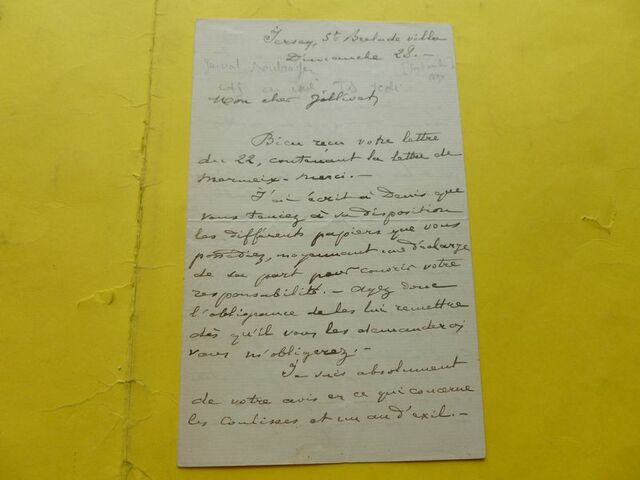 Jersey, St Brelade villa
Dimanche 28. —
Mon cher Jollivet,
Bien reçu votre lettre
du 22, contenant la lettre de
Mermeix — Merci. —
J'ai écrit à Denis que
vous teniez à sa disposition
les différents papiers que vous
possédiez, moyennant une décharge
de sa part pour couvrir votre
responsabilité. — Ayez donc
l'obligeance de les lui remettre
dès qu'il vous les demandera ;
vous m'obligerez. —
Je suis absolument
de votre avis en ce qui concerne
les Coulisses et un an d'exil. —